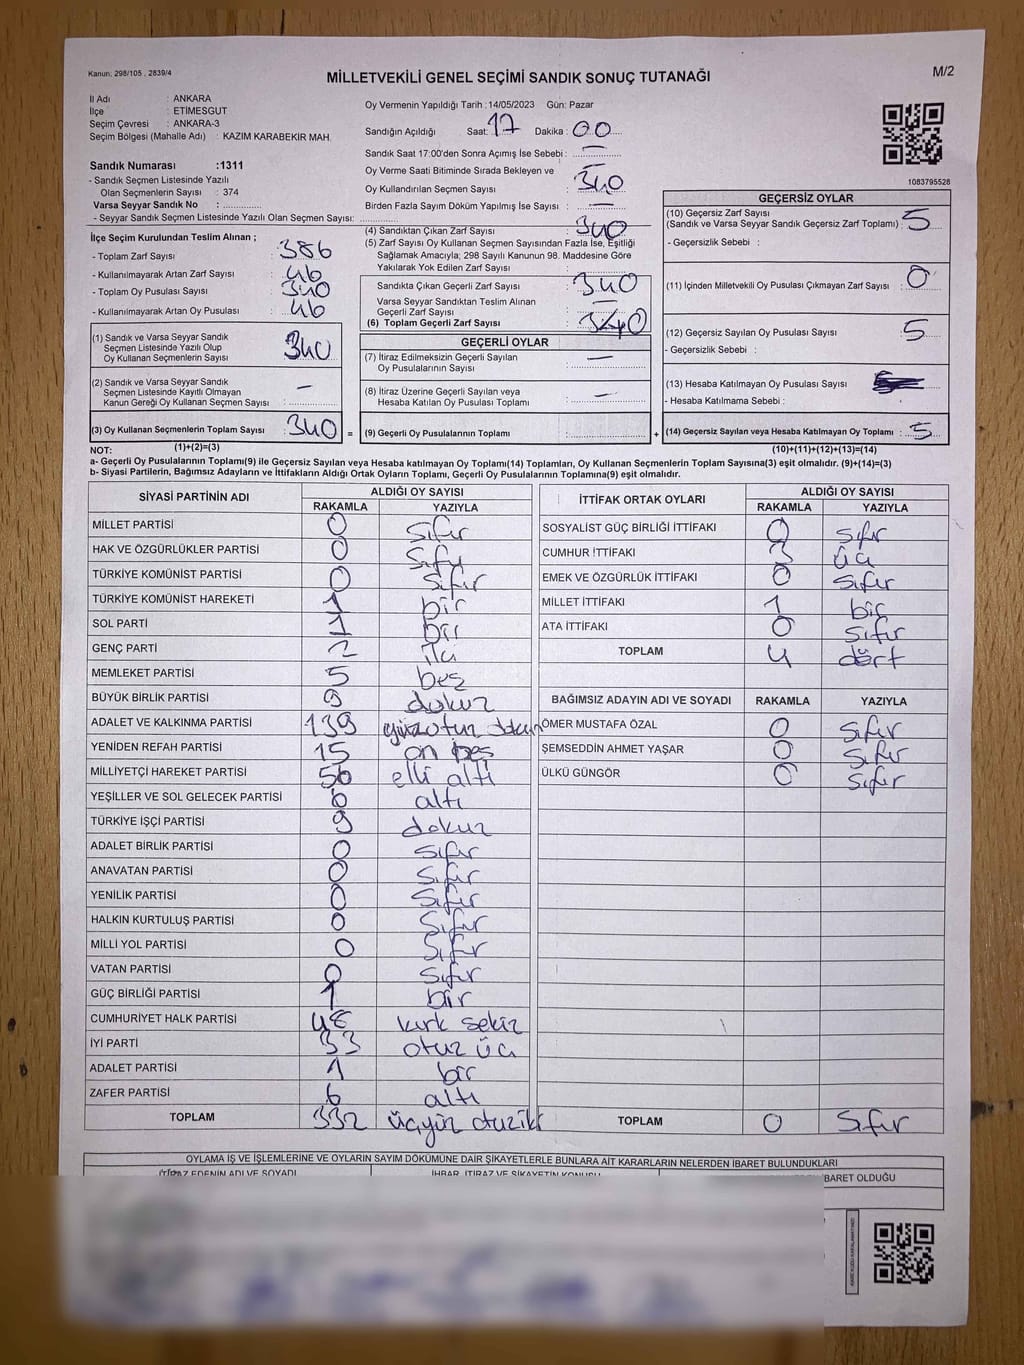 Kanun: 298/105 , 2839/4
MİLLETVEKİLİ GENEL SEÇİMİ SANDIK SONUÇ TUTANAĞI
M/2
İl Adı : ANKARA
İlçe : ETİMESGUT
Seçim Çevresi : ANKARA-3
Seçim Bölgesi (Mahalle Adı) : KAZIM KARABEKIR MAH.
Sandık Numarası :1311
- Sandık Seçmen Listesinde Yazılı
Olan Seçmenlerin Sayısı : 374
Varsa Seyyar Sandık No :
- Seyyar Sandık Seçmen Listesinde Yazılı Olan Seçmen Sayısı:
Oy Vermenin Yapıldığı Tarih :14/05/2023 Gün: Pazar
Sandığın Açıldığı Saat: 17 Dakika : 00
Sandık Saat 17:00'den Sonra Açımış İse Sebebi : —
Oy Verme Saati Bitiminde Sırada Bekleyen ve
Oy Kullandırılan Seçmen Sayısı : 340
Birden Fazla Sayım Döküm Yapılmış İse Sayısı : —
(4) Sandıktan Çıkan Zarf Sayısı : 340
(5) Zarf Sayısı Oy Kullanan Seçmen Sayısından Fazla İse, Eşitliği
Sağlamak Amacıyla; 298 Sayılı Kanunun 98. Maddesine Göre
Yakılarak Yok Edilen Zarf Sayısı :
1083795528
İlçe Seçim Kurulundan Teslim Alınan ;
- Toplam Zarf Sayısı : 386
- Kullanılmayarak Artan Zarf Sayısı : 46
- Toplam Oy Pusulası Sayısı : 340
- Kullanılmayarak Artan Oy Pusulası : 46
(1) Sandık ve Varsa Seyyar Sandık
Seçmen Listesinde Yazılı Olup
Oy Kullanan Seçmenlerin Sayısı : 340
(2) Sandık ve Varsa Seyyar Sandık
Seçmen Listesinde Kayıtlı Olmayan
Kanun Gereği Oy Kullanan Seçmen Sayısı : —
(3) Oy Kullanan Seçmenlerin Toplam Sayısı : 340
Sandıkta Çıkan Geçerli Zarf Sayısı : 340
Varsa Seyyar Sandıktan Teslim Alınan
Geçerli Zarf Sayısı : —
(6) Toplam Geçerli Zarf Sayısı : 340
GEÇERLİ OYLAR
(7) İtiraz Edilmeksizin Geçerli Sayılan
Oy Pusulalarının Sayısı : —
(8) İtiraz Üzerine Geçerli Sayılan veya
Hesaba Katılan Oy Pusulası Toplamı : —
= (9) Geçerli Oy Pusulalarının Toplamı : +
GEÇERSİZ OYLAR
(10) Geçersiz Zarf Sayısı
(Sandık ve Varsa Seyyar Sandık Geçersiz Zarf Toplamı) : 5
- Geçersizlik Sebebi :
(11) İçinden Milletvekili Oy Pusulası Çıkmayan Zarf Sayısı : 0
(12) Geçersiz Sayılan Oy Pusulası Sayısı : 5
- Geçersizlik Sebebi :
(13) Hesaba Katılmayan Oy Pusulası Sayısı :
- Hesaba Katılmama Sebebi :
(14) Geçersiz Sayılan veya Hesaba Katılmayan Oy Toplamı : 5
NOT: (1)+(2)=(3) (10)+(11)+(12)+(13)=(14)
a- Geçerli Oy Pusulalarının Toplamı(9) ile Geçersiz Sayılan veya Hesaba katılmayan Oy Toplamı(14) Toplamları, Oy Kullanan Seçmenlerin Toplam Sayısına(3) eşit olmalıdır. (9)+(14)=(3)
b- Siyasi Partilerin, Bağımsız Adayların ve İttifakların Aldığı Ortak Oyların Toplamı, Geçerli Oy Pusulalarının Toplamına(9) eşit olmalıdır.
SİYASİ PARTİNİN ADI ALDIĞI OY SAYISI
RAKAMLA YAZIYLA
MİLLET PARTİSİ 0 sıfır
HAK VE ÖZGÜRLÜKLER PARTİSİ 0 sıfır
TÜRKİYE KOMÜNİST PARTİSİ 0 sıfır
TÜRKİYE KOMÜNİST HAREKETİ 1 bir
SOL PARTİ 1 bir
GENÇ PARTİ 2 iki
MEMLEKET PARTİSİ 5 beş
BÜYÜK BİRLİK PARTİSİ 9 dokuz
ADALET VE KALKINMA PARTİSİ 139 yüzotuz dokuz
YENİDEN REFAH PARTİSİ 15 on beş
MİLLİYETÇİ HAREKET PARTİSİ 56 elli altı
YEŞİLLER VE SOL GELECEK PARTİSİ 6 altı
TÜRKİYE İŞÇİ PARTİSİ 9 dokuz
ADALET BİRLİK PARTİSİ 0 sıfır
ANAVATAN PARTİSİ 0 sıfır
YENİLİK PARTİSİ 0 sıfır
HALKIN KURTULUŞ PARTİSİ 0 sıfır
MİLLİ YOL PARTİSİ 0 sıfır
VATAN PARTİSİ 0 sıfır
GÜÇ BİRLİĞİ PARTİSİ 1 bir
CUMHURİYET HALK PARTİSİ 48 kırk sekiz
İYİ PARTİ 33 otuz üç
ADALET PARTİSİ 1 bir
ZAFER PARTİSİ 6 altı
TOPLAM 332 üçyüz otuziki
İTTİFAK ORTAK OYLARI ALDIĞI OY SAYISI
RAKAMLA YAZIYLA
SOSYALİST GÜÇ BİRLİĞİ İTTİFAKI 0 sıfır
CUMHUR İTTİFAKI 3 üç
EMEK VE ÖZGÜRLÜK İTTİFAKI 0 sıfır
MİLLET İTTİFAKI 1 bir
ATA İTTİFAKI 0 sıfır
TOPLAM 4 dört
BAĞIMSIZ ADAYIN ADI VE SOYADI RAKAMLA YAZIYLA
ÖMER MUSTAFA ÖZAL 0 sıfır
ŞEMSEDDİN AHMET YAŞAR 0 sıfır
ÜLKÜ GÜNGÖR 0 sıfır
TOPLAM 0 sıfır
OYLAMA İŞ VE İŞLEMLERİNE VE OYLARIN SAYIM DÖKÜMÜNE DAİR ŞİKAYETLERLE BUNLARA AİT KARARLARIN NELERDEN İBARET BULUNDUKLARI
İTİRAZ EDENİN ADI VE SOYADI İHBAR, İTİRAZ VE ŞİKAYETİN KONUSU İBARET OLDUĞU